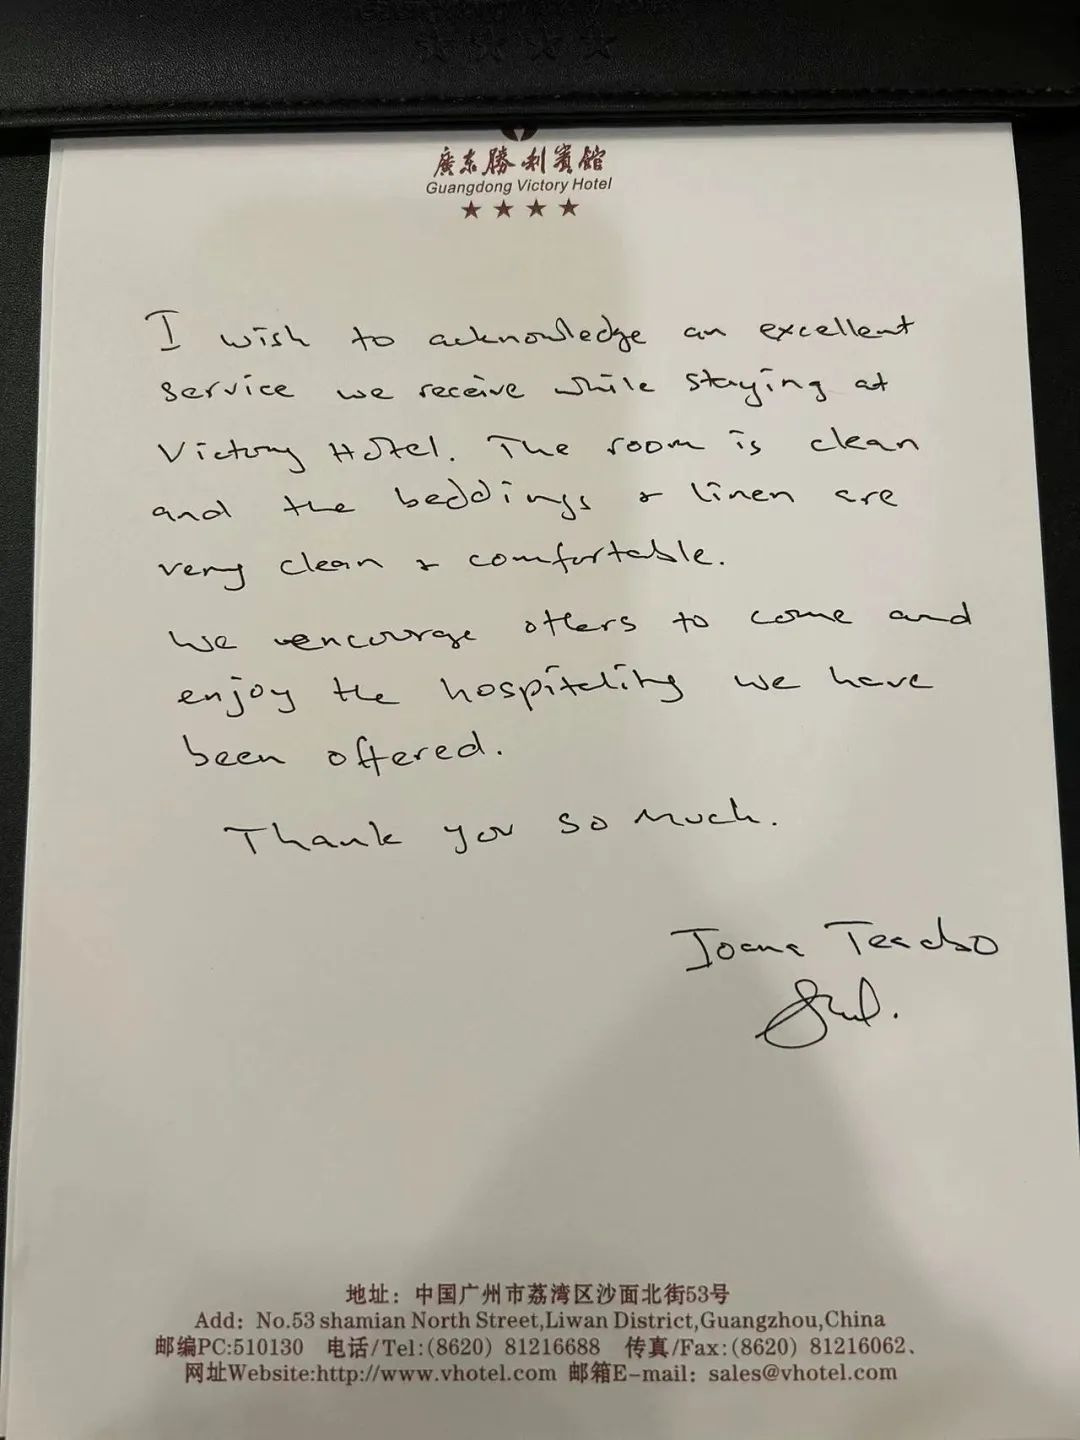 廣东勝利賓館
Guangdong Victory Hotel
I wish to acknowledge an excellent
service we receive while staying at
Victory Hotel. The room is clean
and the beddings & linen are
very clean & comfortable.
We encourage others to come and
enjoy the hospitality we have
been offered.
Thank you so much.
Joana
地址：中国广州市荔湾区沙面北街53号
Add：No.53 shamian North Street,Liwan District,Guangzhou,China
邮编PC:510130 电话/Tel:(8620) 81216688 传真/Fax:(8620) 81216062、
网址Website:http://www.vhotel.com 邮箱E-mail：sales@vhotel.com